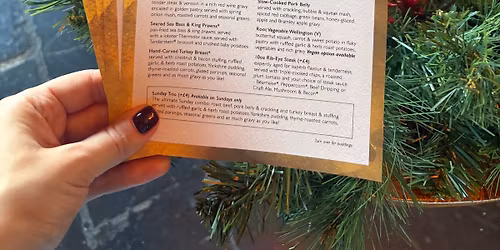 tender steak & venison in a rich red wine gravy
encased in golden pastry served with spring
onion mash, roasted carrots and seasonal greens
Seared Sea Bass & King Prawns*
pan-fried sea bass and king prawns, served
with a lobster Thermidor sauce, served with
Tenderstem® broccoli and crushed baby potatoes
Hand-Carved Turkey Breast*
served with chestnut & bacon stuffing, ruffled
garlic & herb roast potatoes, Yorkshire pudding,
thyme-roasted carrots, glazed parsnips, seasonal
greens and as much gravy as you like!
Slow-Cooked Pork Belly
served with crushed, bubble & squeak mash,
spiced red cabbage, green beans, honey-glazed
apple and Bramley apple gravy
Root Vegetable Wellington (V)
butternut squash, carrot & sweet potato in flaky
pastry with ruffled garlic & herb roast potatoes,
vegetables and rich gravy Vegan option available
10oz Rib-Eye Steak (+£4)
expertly aged for superb flavour & tenderness,
served with triple-cooked chips, a roasted
plum tomato and your choice of steak sauce
- Béarnaise*, Peppercorn*, Beef Dripping or
Craft Ale, Mushroom & Bacon*
Sunday Trio (+£4) Available on Sundays only
The ultimate Sunday combo: roast beef, pork belly & crackling and turkey breast & stuffing,
served with ruffled garlic & herb roast potatoes, Yorkshire pudding, thyme-roasted carrots,
glazed parsnips, seasonal greens and as much gravy as you like!
Turn over for puddings